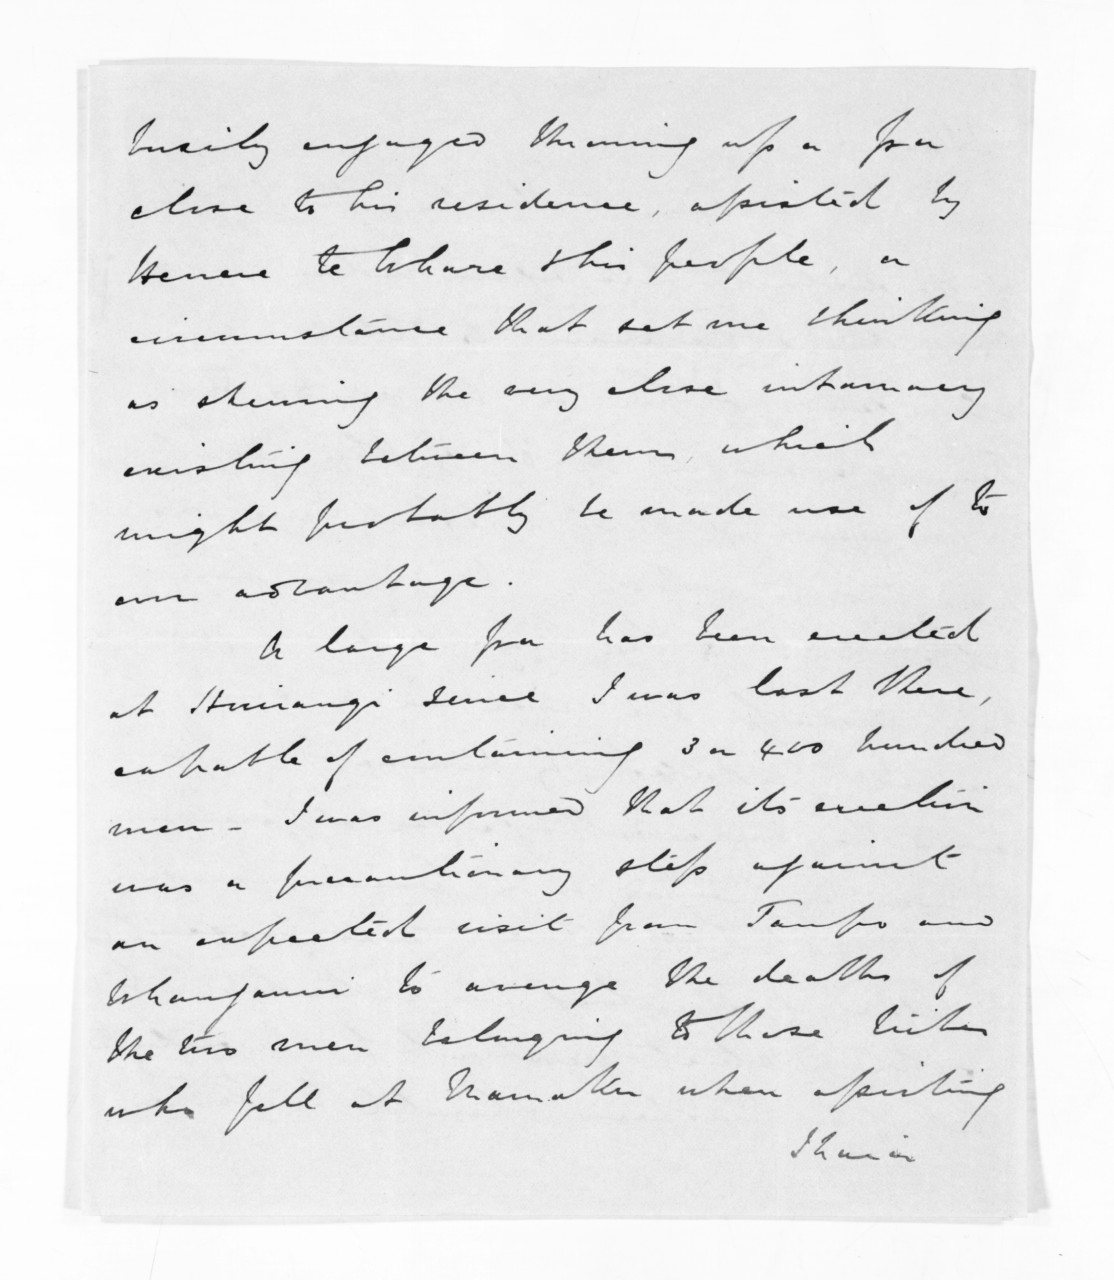 busily engaged throwing up a pa
close to his residence, assisted by
Henere te Whare & his people, a
circumstance that set me thinking
as shewing the very close intamacy
existing between them, which
might probably be made use of to
our advantage.
A large pa has been erected
at Hiruangi since I was last there,
capable of containing 3 or 400 hundred
men - I was informed that its erection
was a precautionary step against
an expected visit from Taupo and
Whanganui to avenge the deaths of
the two men belonging to those tribes
who fell at when assisting
Ihaia